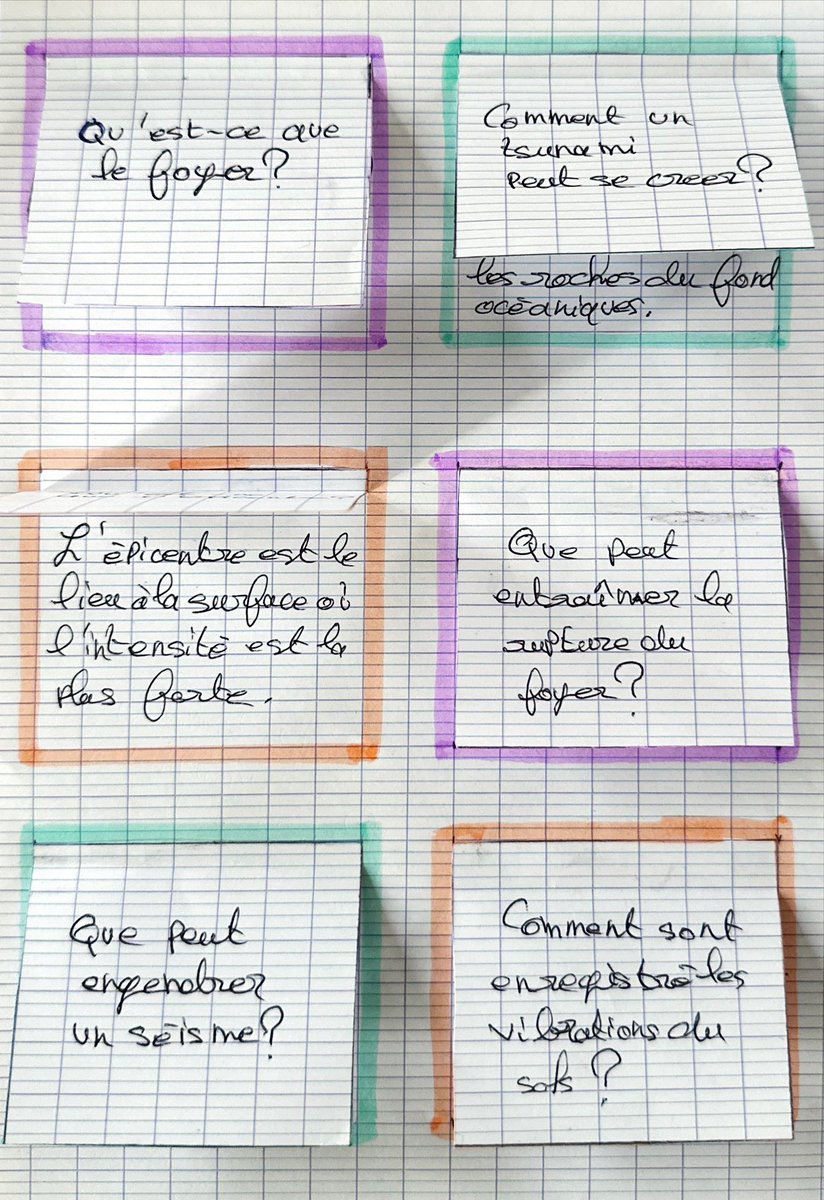 Qu'est-ce que
le foyer?
Comment un
tsunami
peut se creer?
les roches du fond
océaniques.
L'épicentre est le
lieu à la surface où
l'intensité est la
plus forte.
Que peut
entraîner la
rupture du
foyer?
Que peut
engendrer
un séisme?
Comment sont
enregistré les
vibrations du
sols?